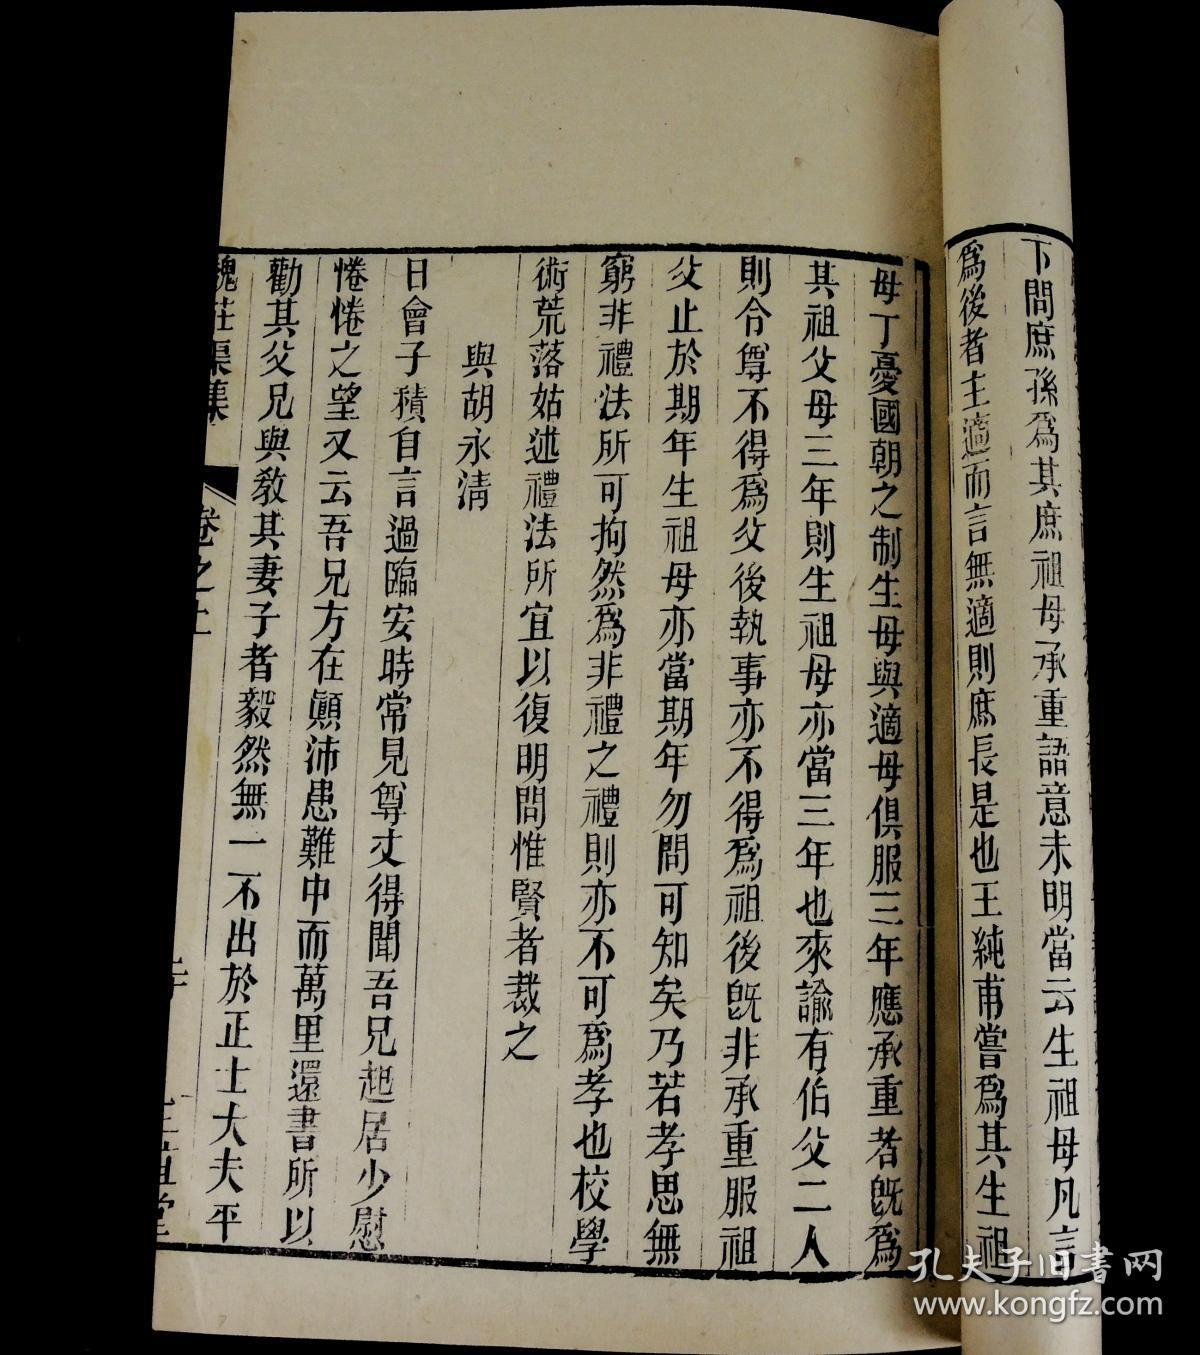 下問庶孫爲其庶祖母承重語意未明當云生祖母凡言
爲後者主適而言無適則庶長是也王純甫嘗爲其生祖
母丁憂國朝之制生母與適母俱服三年應承重者既爲
其祖父母三年則生祖母亦當三年也來諭有伯父二人
則令尊不得爲父後執事亦不得爲祖後既非承重服祖
父止於期年生祖母亦當期年勿問可知矣乃若孝思無
窮非禮法所可拘然爲非禮之禮則亦不可爲孝也校學
術荒落姑述禮法所宜以復明問惟賢者裁之
與胡永清
日會子積自言過臨安時常見尊丈得聞吾兄起居少慰
惓惓之望又云吾兄方在顚沛患難中而萬里還書所以
勸其父兄與敎其妻子者毅然無一不出於正士大夫平
魏莊渠集 卷之上 正誼堂
孔夫子旧书网
www.kongfz.com